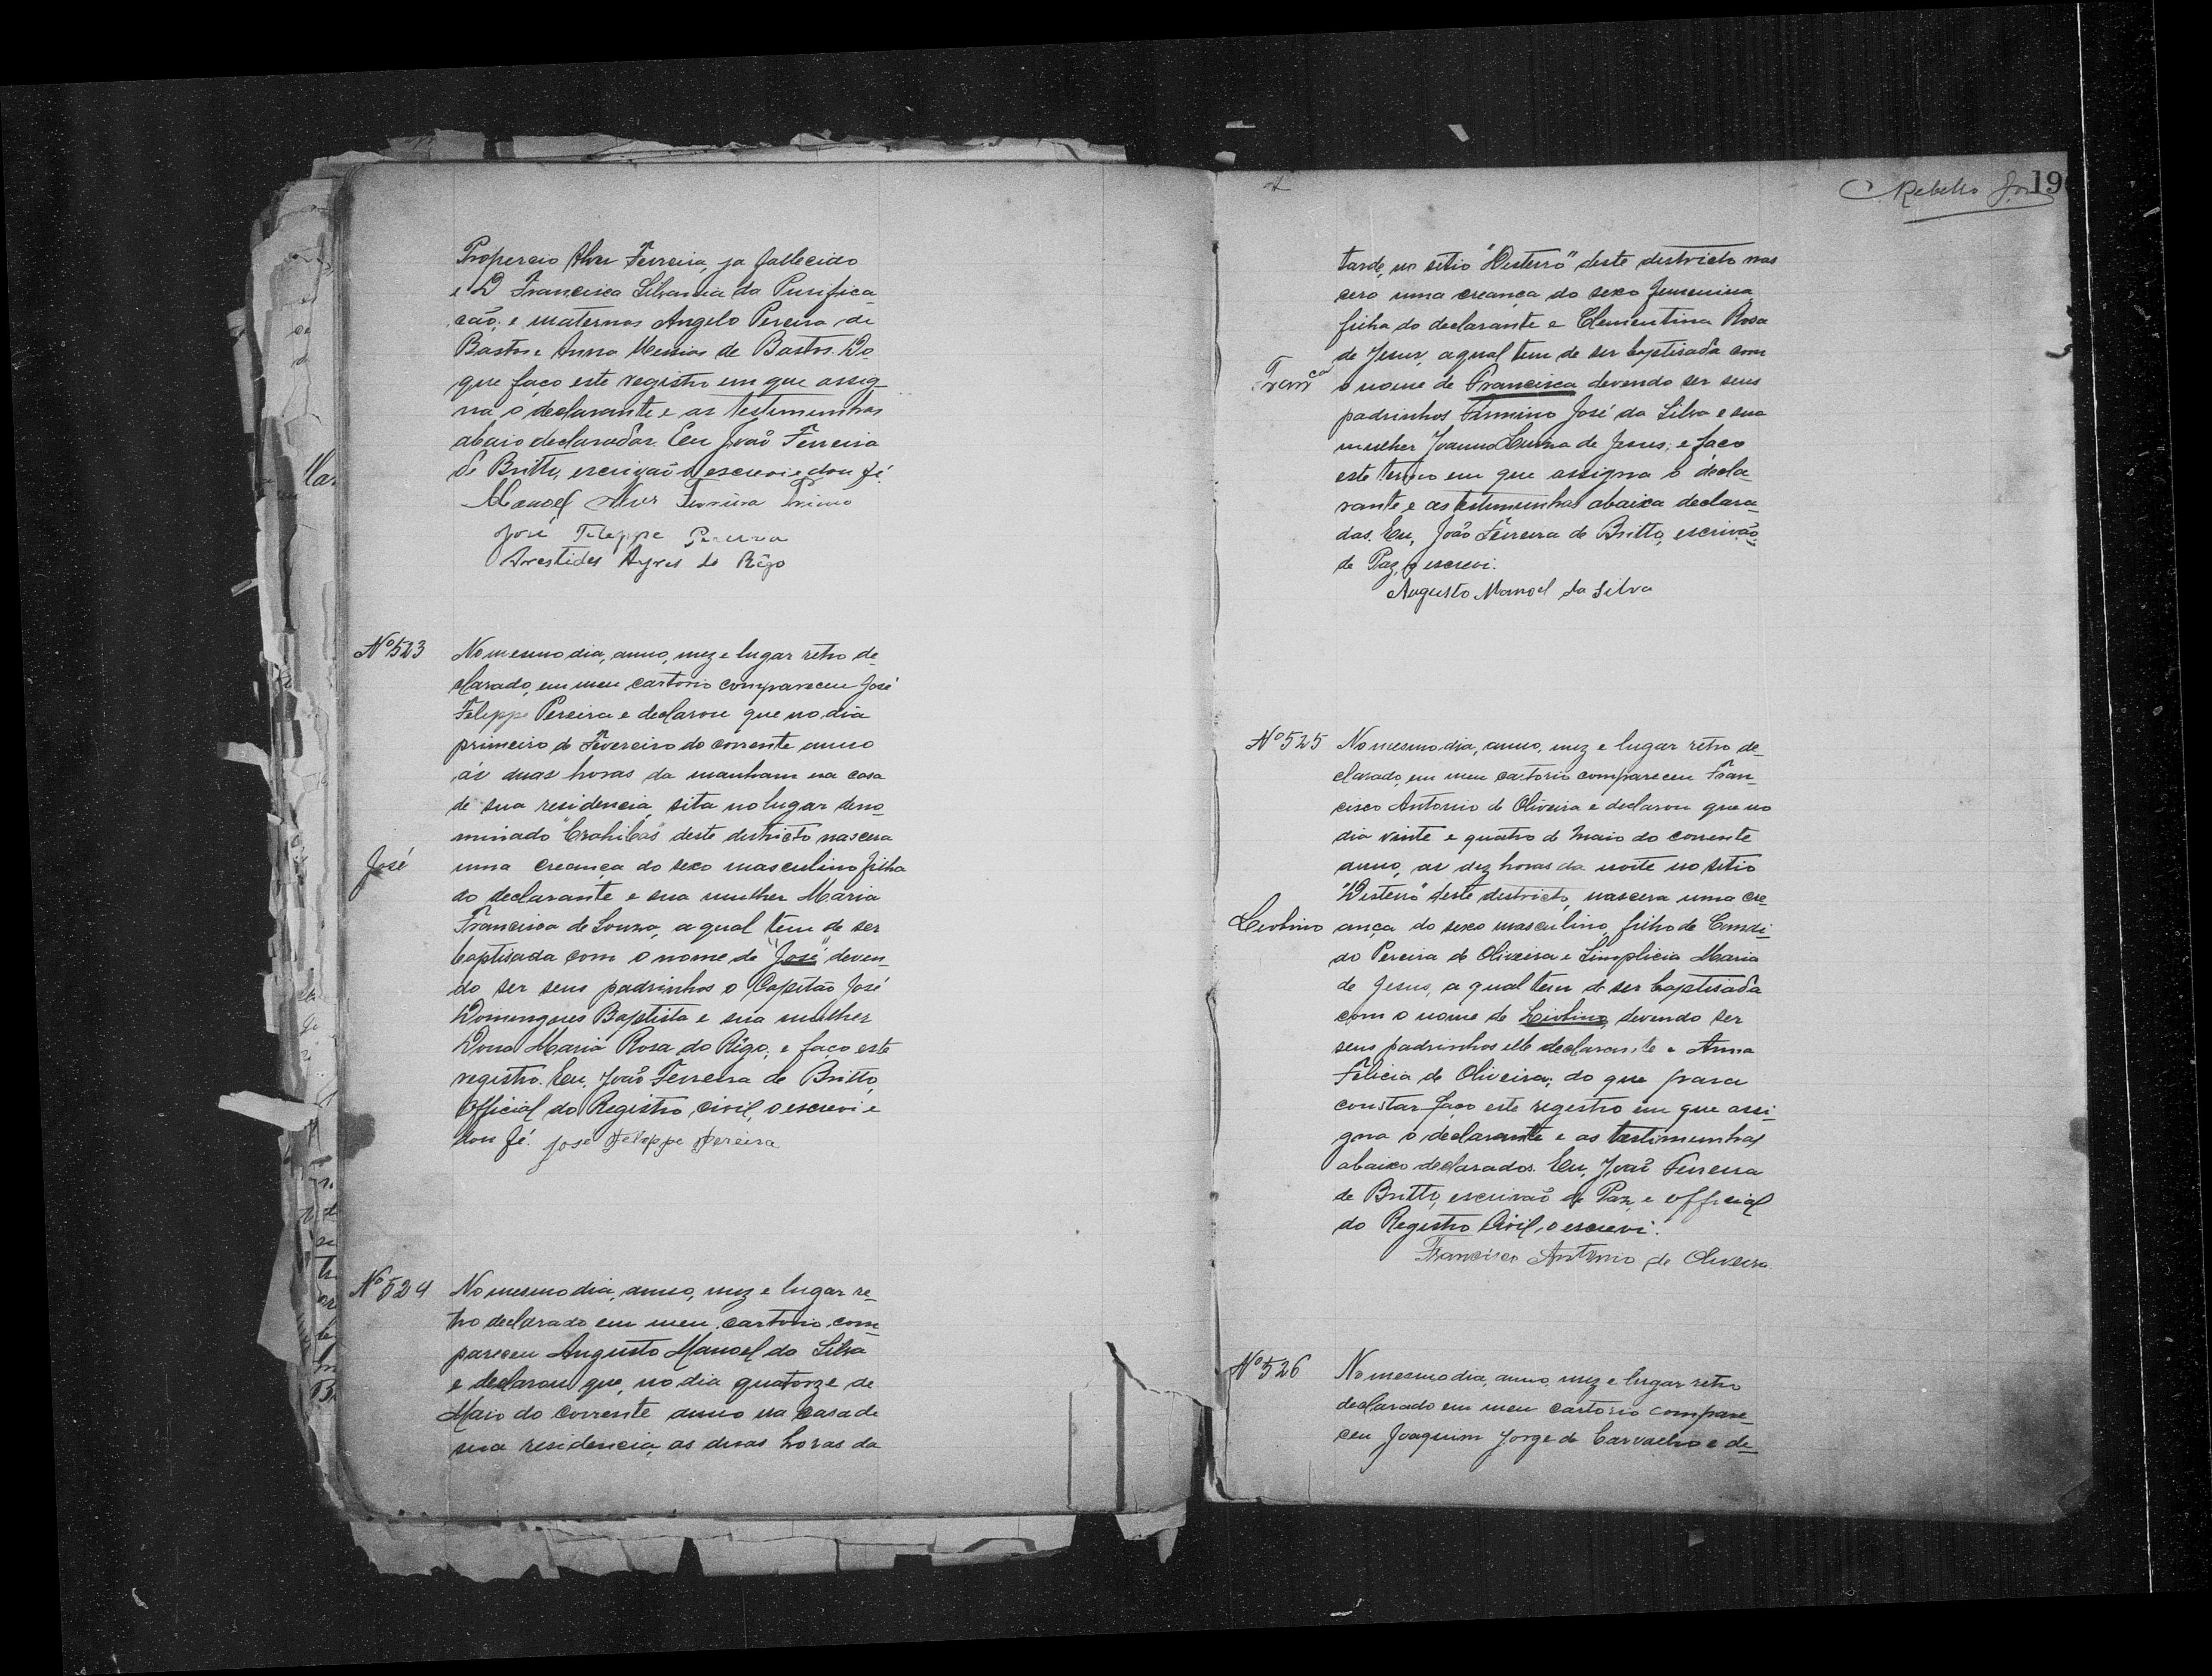 Propercio Alves Ferreira, ja fallecido
e D Francisca Silvania da Purifica-
cão; e maternos Angelo Pereira de
Bastos e Anna Messias de Bastos. Do
que faço este registro em que assig-
na o declarante e as testemunhas
abaixo declaradas. Eu João Ferreira
de Britto, escrivão o escrevi e dou fé.
Manoel Alves Ferreira Primo
José Felippe Pereira
Arestides Ayres do Rêgo
Nº 523
No mesmo dia, anno, mez e lugar retro de-
clarado, em meu cartorio compareceu José
Felippe Pereira e declarou que no dia
primeiro de Fevereiro do corrente anno
ás duas horas da manham na casa
de sua residencia, sita no lugar deno-
minado "Crahibas" deste districto nascera
José
uma creança do sexo masculino filha
do declarante e sua mulher Maria
Francisca de Souza, a qual tem de ser
baptisada com o nome de "José" deven-
do ser seus padrinhos o Capitão José
Domingues Baptista e sua mulher
Dona Maria Rosa do Rêgo; e faço este
registro. Eu, João Ferreira de Britto,
Official do Registro civil, o escrevi e
dou fé. José Felippe Pereira
Nº 524
No mesmo dia, anno, mez e lugar re-
tro declarado em meu cartorio com-
pareceu Augusto Manoel da Silva
e declarou que, no dia quatorze de
Maio do corrente anno na casa de
sua residencia, as duas horas da
C. Rebello Jor 19
tarde, no sitio "Desterro" deste districto nas
cera uma creança do sexo femenina
filha do declarante e Clementina Rosa
de Jesus, a qual tem de ser baptisada com
Franca
o nome de Francisca devendo ser seus
padrinhos Firmino José da Silva e sua
mulher Joanna de Jesus; e faço
este termo em que assigna o decla-
rante e as testemunhas abaixa declara-
das. Eu, João Ferreira de Britto, escrivão
de Paz, o escrevi.
Augusto Manoel da Silva
Nº 525
No mesmo dia, anno, mez e lugar retro de-
clarado, em meu cartorio compareceu Fran-
cisco Antonio de Oliveira e declarou que no
dia vinte e quatro de Maio do corrente
anno, as dez horas da noite no sitio
"Desterro" deste districto, nascera uma cre-
Liolino
ança do sexo masculino, filho de Candi-
do Pereira de Oliveira e Simplicia Maria
de Jesus, a qual tem de ser baptisada
com o nome de Liolino, devendo ser
seus padrinhos elle declarante e Anna
Felicia de Oliveira; do que para
constar faço este registro em que assi-
gna o declarante e as testimunhas
abaixo declarados. Eu, João Ferreira
de Britto, escrivão de Paz, e official
do Registro Civil, o escrevi.
Francisco Antonio de Oliveira
Nº 526
No mesmo dia, anno, mez e lugar retro
declarado em meu cartorio compare-
ceu Joaquim Jorge de Carvalho e de-